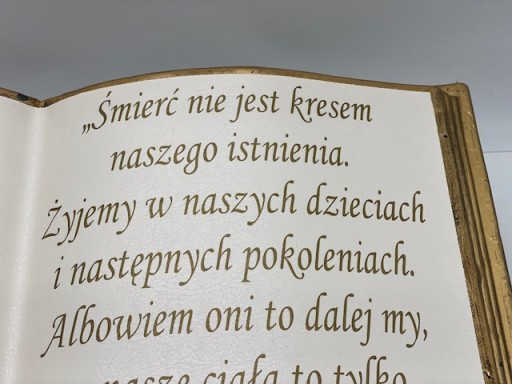 „Śmierć nie jest kresem
naszego istnienia.
Żyjemy w naszych dzieciach
i następnych pokoleniach.
Albowiem oni to dalej my,
nasze ciała to tylko